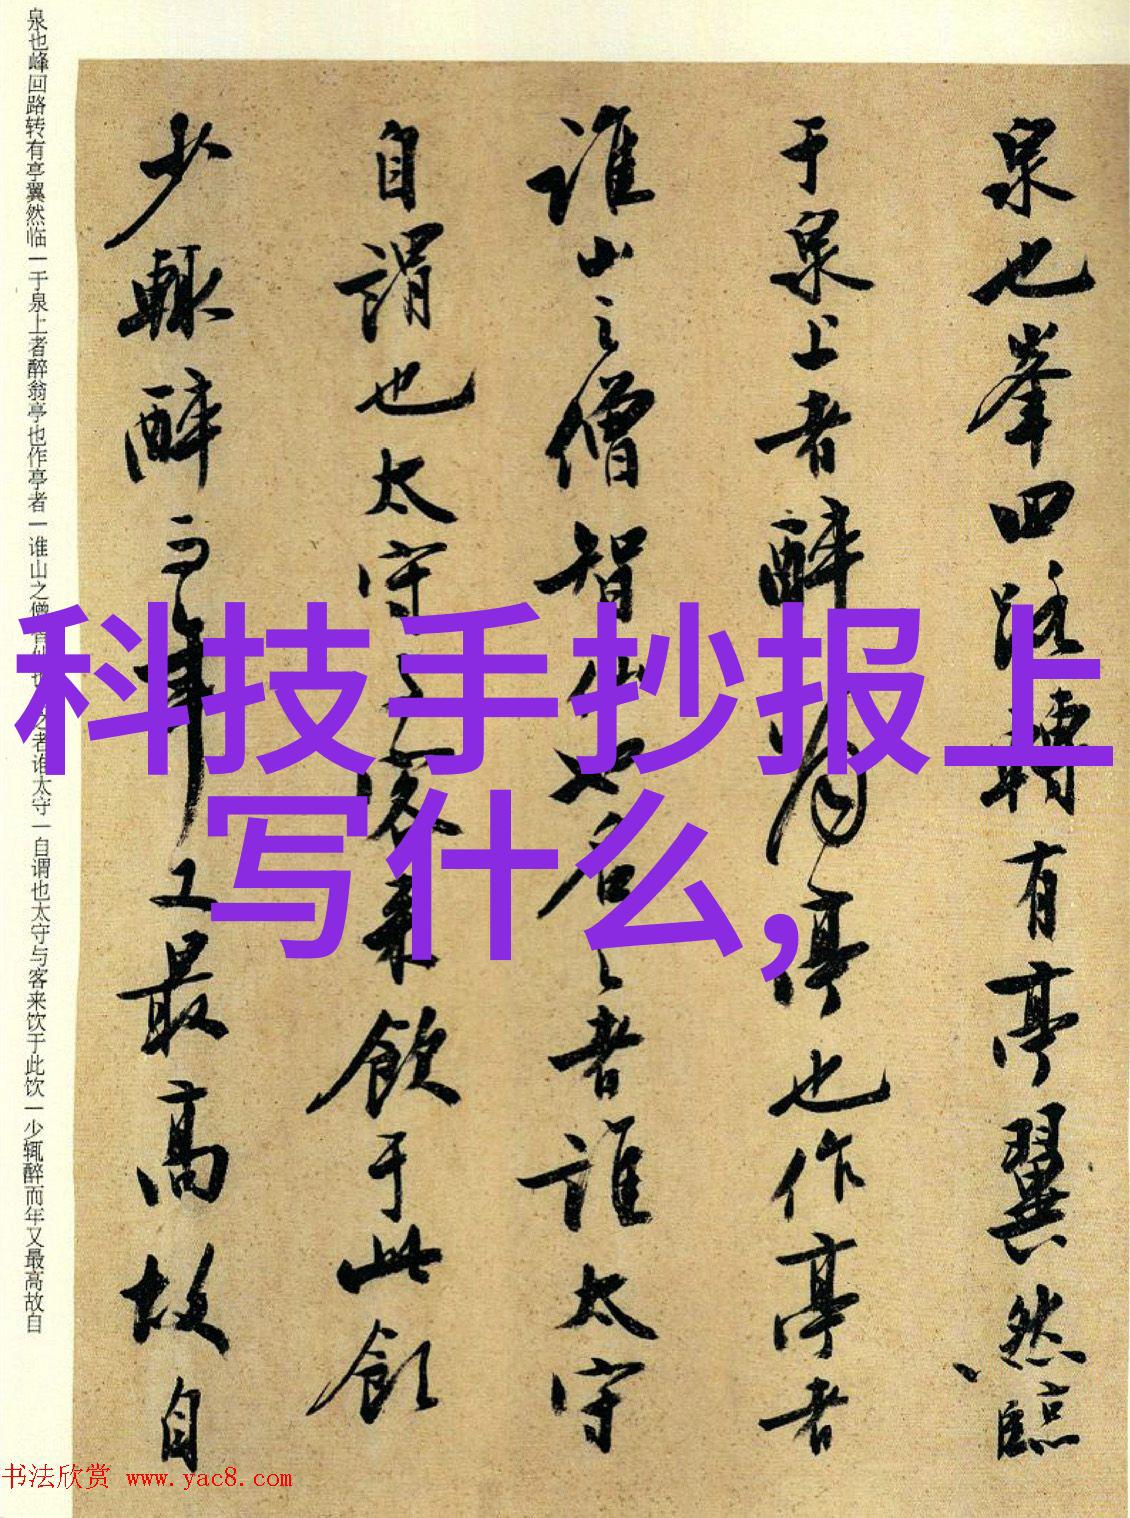 科技手抄报上
写什么,
泉也峯回路轉有亭翼然臨
于泉上者醉翁亭也作亭者
誰山之僧智仙也名之者誰太守
自謂也太守客來飲于此飲
少輒醉而年又最高故自
泉也峰回路转有亭翼然临一于泉上者醉翁亭也作亭者一谁山之僧智仙也名之者谁太守一自谓也太守与客来饮于此饮一少辄醉而年又最高故自
书法欣赏 www.yac8.com